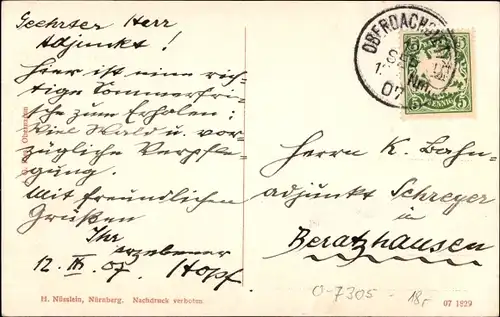 Geehrter Herr
Adjunkt!
Hier ist eine rich-
tige Sommerfri-
sche zum Erholen:
Viel Wald u. vor-
zügliche Verpfle-
gung.
Mit freundlichen
Grüßen
Ihr
ergebener
12. IX. 07. Hopf
H. Nüsslein, Nürnberg. Nachdruck verboten.
OBERDACHSTETTEN
SEP
07
5 5
PFENNIG
5 5
Herrn K. Bahn-
adjunkt Schreyer
in
Beratzhausen
0-7305 - 18r
07 1829